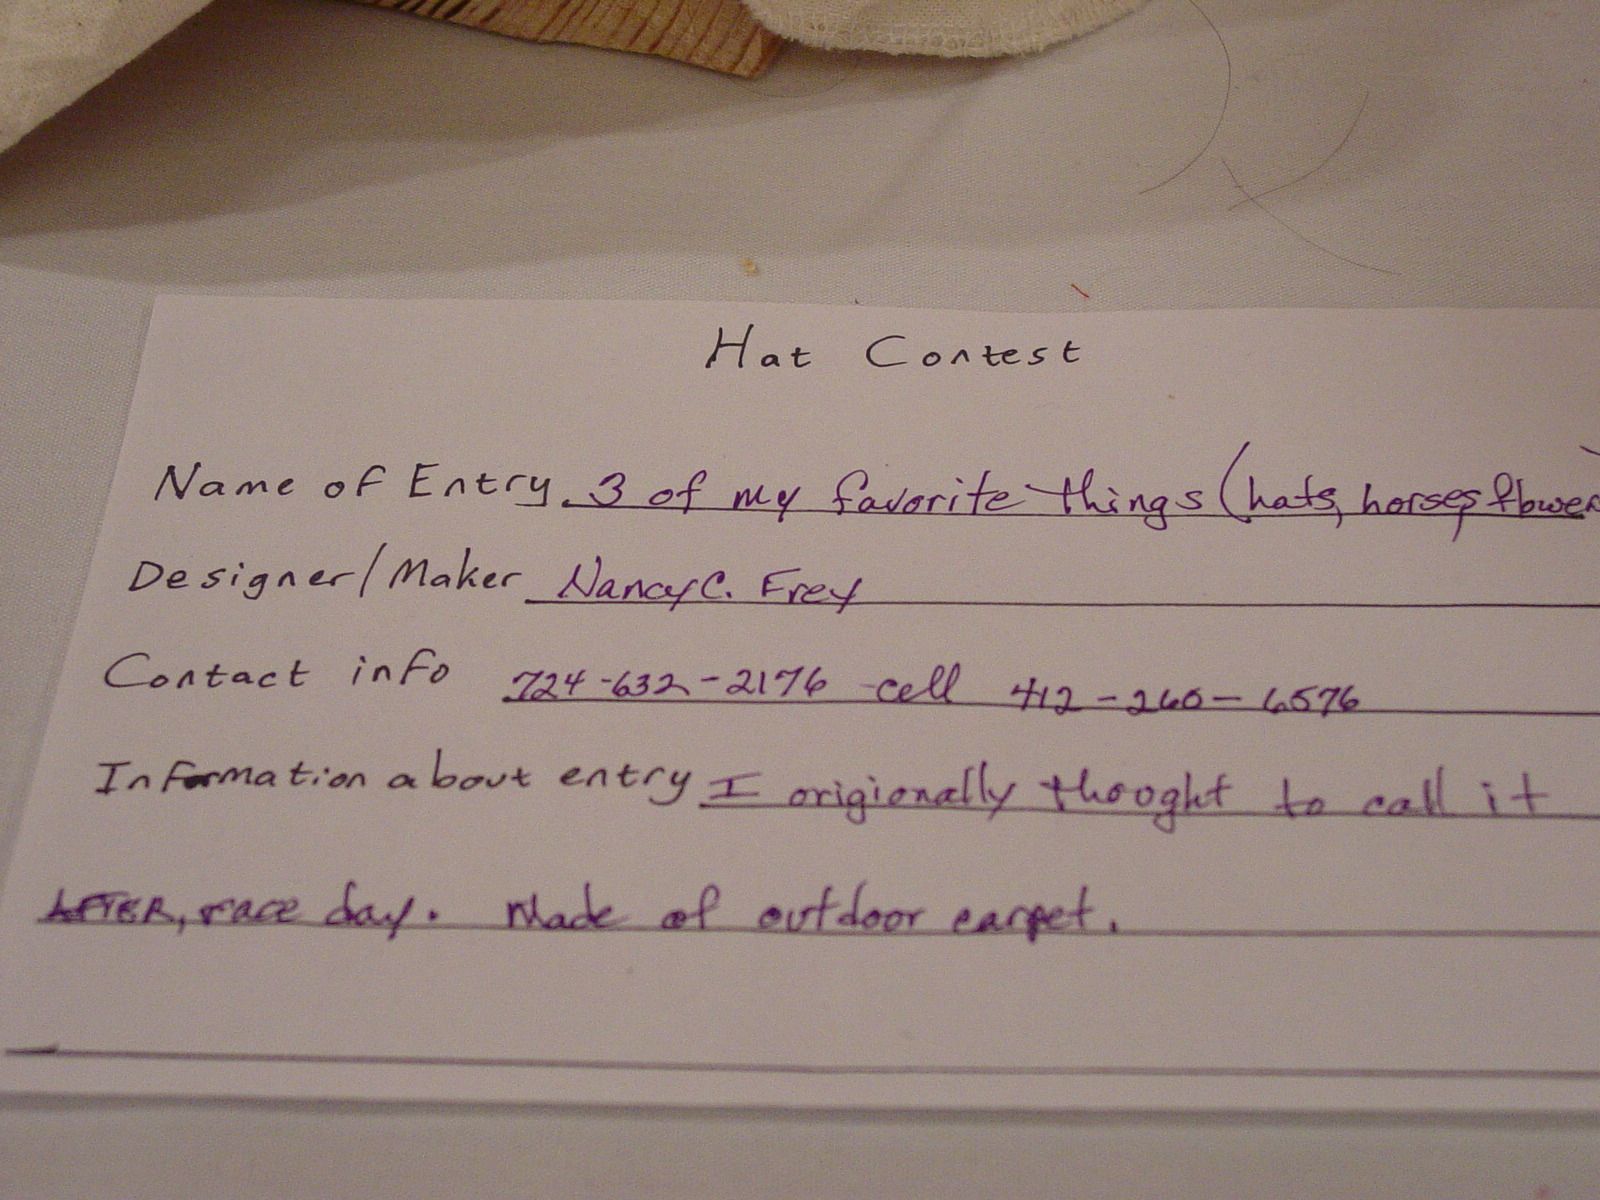 Hat Contest
Name of Entry 3 of my favorite things (hats, horses, flower
Designer/Maker Nancy C. Frey
Contact info 724-632-2176 cell 412-260-6576
Information about entry I origionally thought to call it
AFTER, race day. Made of outdoor carpet.